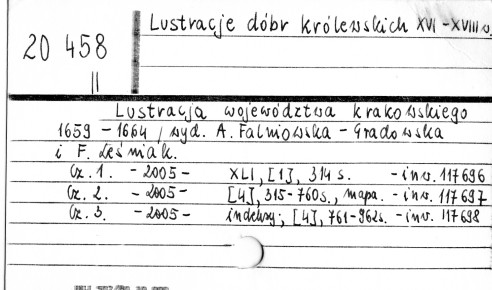 Lustracje dóbr królewskich XVI-XVIII w.
20 458
II
Lustracja województwa krakowskiego
1659 - 1664 / wyd. A. Falniowska - Gradowska
i F. Leśniak.
Cz. 1. - 2005 - XLI, [1], 314 s. - inw. 117696
Cz. 2. - 2005 - [4], 315-760s., mapa. - inw. 117697
Cz. 3. - 2005 - indeksy; [4], 761-962s. - inw. 117698